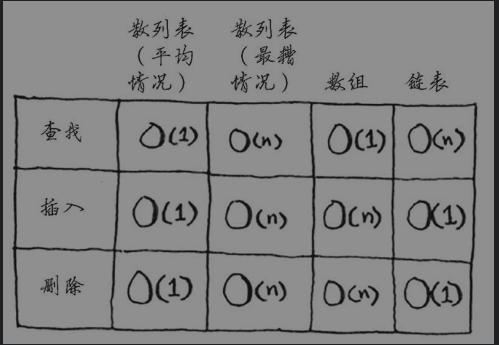 散列表（平均情况） 散列表（最糟情况） 数组 链表
查找 O(1) O(n) O(1) O(n)
插入 O(1) O(n) O(n) O(1)
删除 O(1) O(n) O(n) O(1)